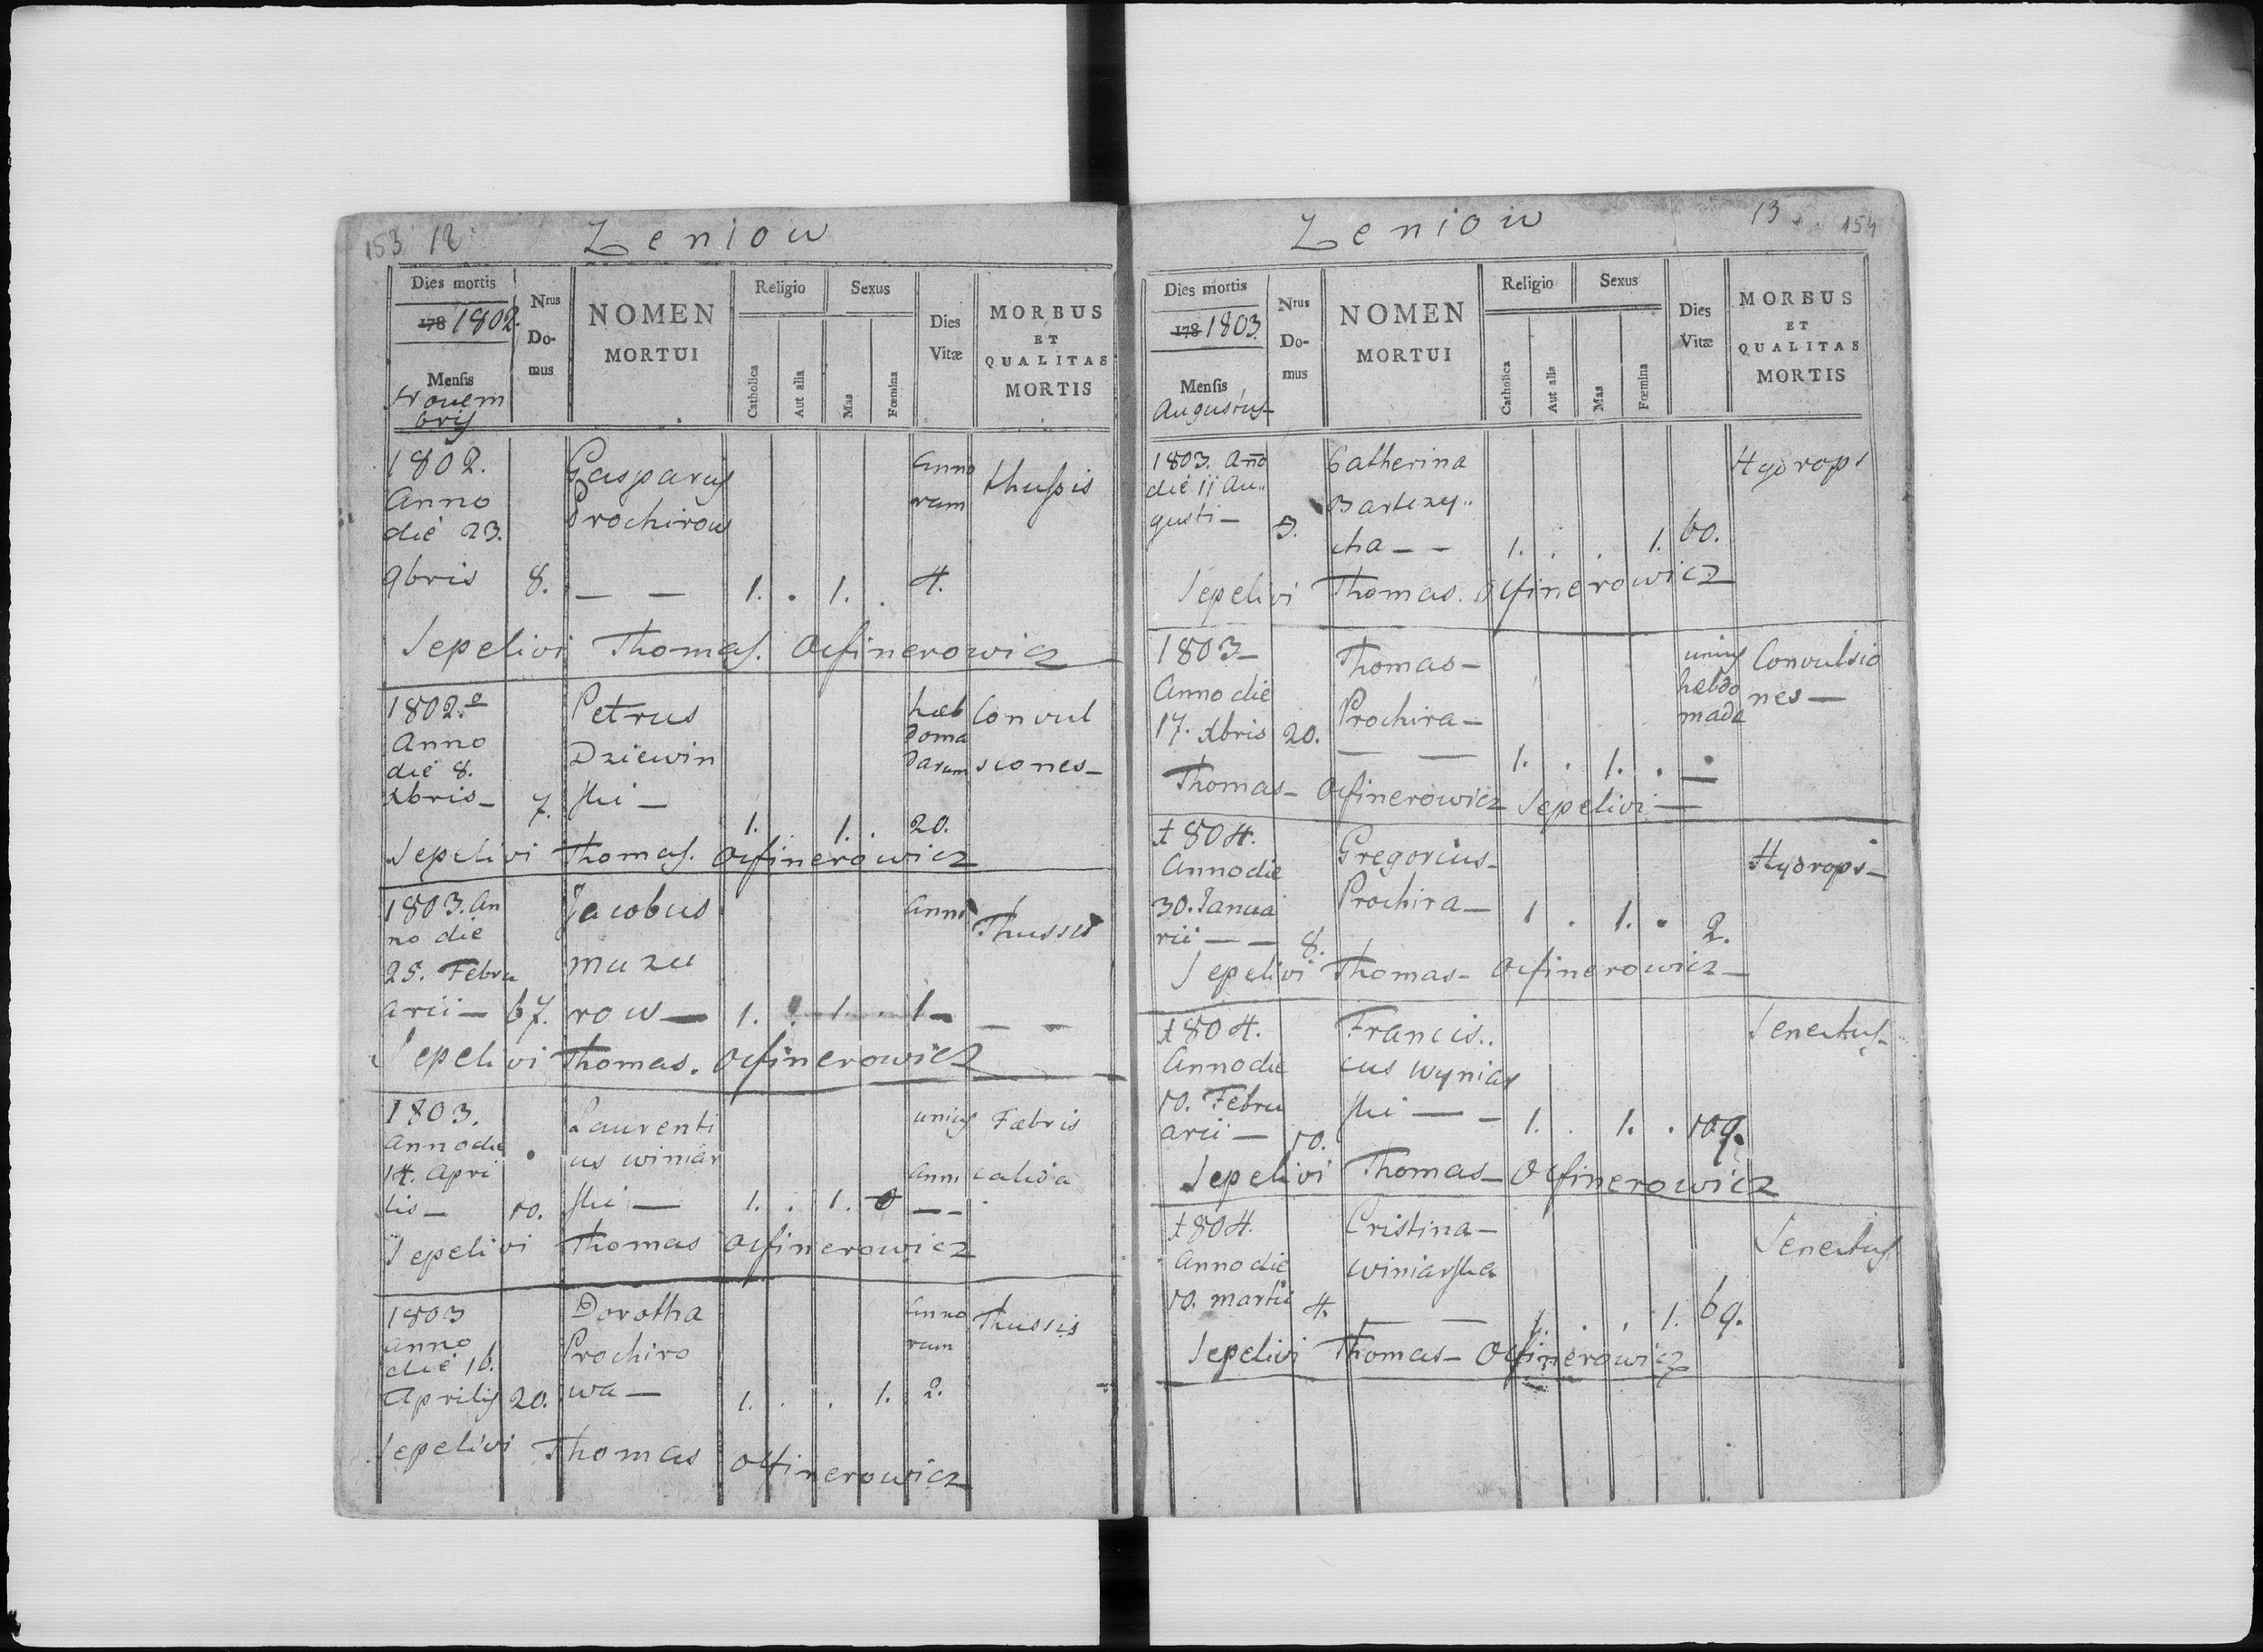 153 12
Zeniow
Dies mortis
178 1802.
Mensis
Novem
bris
Nrus
Do-
mus
NOMEN
MORTUI
Religio
Catholica
Aut alia
Sexus
Mas
Fœmina
Dies
Vitæ
MORBUS
ET
QUALITAS
MORTIS
1802.
Anno
die 23.
9bris 8.
Gasparus
Prochirow
— —
1. . 1. .
Anno
rum
4.
thussis
Sepelivi Thomas. Olfinerowicz
1802.o
Anno
die 8.
Xbris— 7.
Petrus
Dziewin
ski—
1. 1. .
hæb
doma
darum
20.
Convul
siones—
Sepelivi Thomas. Olfinerowicz
1803. An
no die
25. Febru
arii— 67.
Jacobus
Mazu
row—
1. . 1. .
Anni
1—
Thussis
— —
Sepelivi Thomas. Olfinerowicz
1803.
Anno die
14. Apri
lis— 10.
Laurenti
us Winiar
ski—
1. . 1. 0
unius
Anni
— -
Fæbris
calida
Sepelivi Thomas Olfinerowicz
1803
Anno
die 16.
Aprilis 20.
Dorotha
Prochiro
wa—
1. . . 1.
Anno
rum
2.
Thussis
Sepelivi Thomas Olfinerowicz
Zeniow
13. 154
Dies mortis
178 1803.
Mensis
Augustus
Nrus
Do-
mus
NOMEN
MORTUI
Religio
Catholica
Aut alia
Sexus
Mas
Fœmina
Dies
Vitæ
MORBUS
ET
QUALITAS
MORTIS
1803. Año
die 11 Au„
gusti— 3.
Catherina
Bartezy„
cha— —
1. . . 1.
60.
Hydrops
Sepelivi Thomas. Olfinerowicz
1803—
Anno die
17. Xbris 20.
Thomas—
Prochira—
— —
1. . 1. .
unius
hæbdo
mada
Convulsio
nes—
Thomas— Olfinerowicz Sepelivi—
1804.
Anno die
30. Janua
rii— — 8.
Gregorius—
Prochira—
1 . 1. .
2.
Hydrops—
Sepelivi Thomas— Olfinerowicz—
1804.
Anno die
10. Febru
arii— 10.
Francis„
cus Wyniar
ski— —
1. . 1. .
109.
Senectus—
Sepelivi Thomas— Olfinerowicz
1804.
Anno die
10. Martii 4.
Cristina—
Winiarska
— —
1. . . 1.
69.
Senectus
Sepelivi Thomas— Olfinerowicz